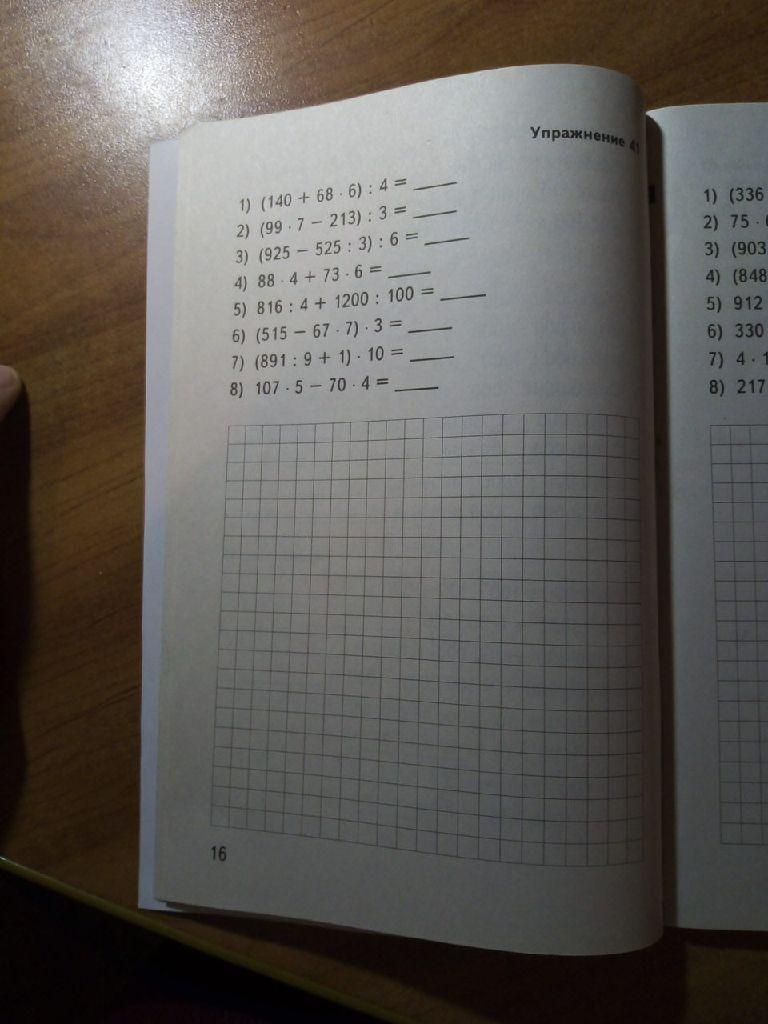 Упражнение 41
1) (140 + 68 · 6) : 4 = ____
2) (99 · 7 − 213) : 3 = ____
3) (925 − 525 : 3) : 6 = ____
4) 88 · 4 + 73 · 6 = ____
5) 816 : 4 + 1200 : 100 = ____
6) (515 − 67 · 7) · 3 = ____
7) (891 : 9 + 1) · 10 = ____
8) 107 · 5 − 70 · 4 = ____
16
1) (336
2) 75 ·
3) (903
4) (848
5) 912
6) 330
7) 4 · 1
8) 217